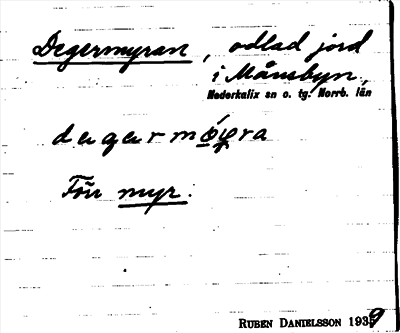 Degermyran, odlad jord
i Månsbyn,
Nederkalix sn o. tg. Norrb. län
Förr myr.
RUBEN DANIELSSON 1939